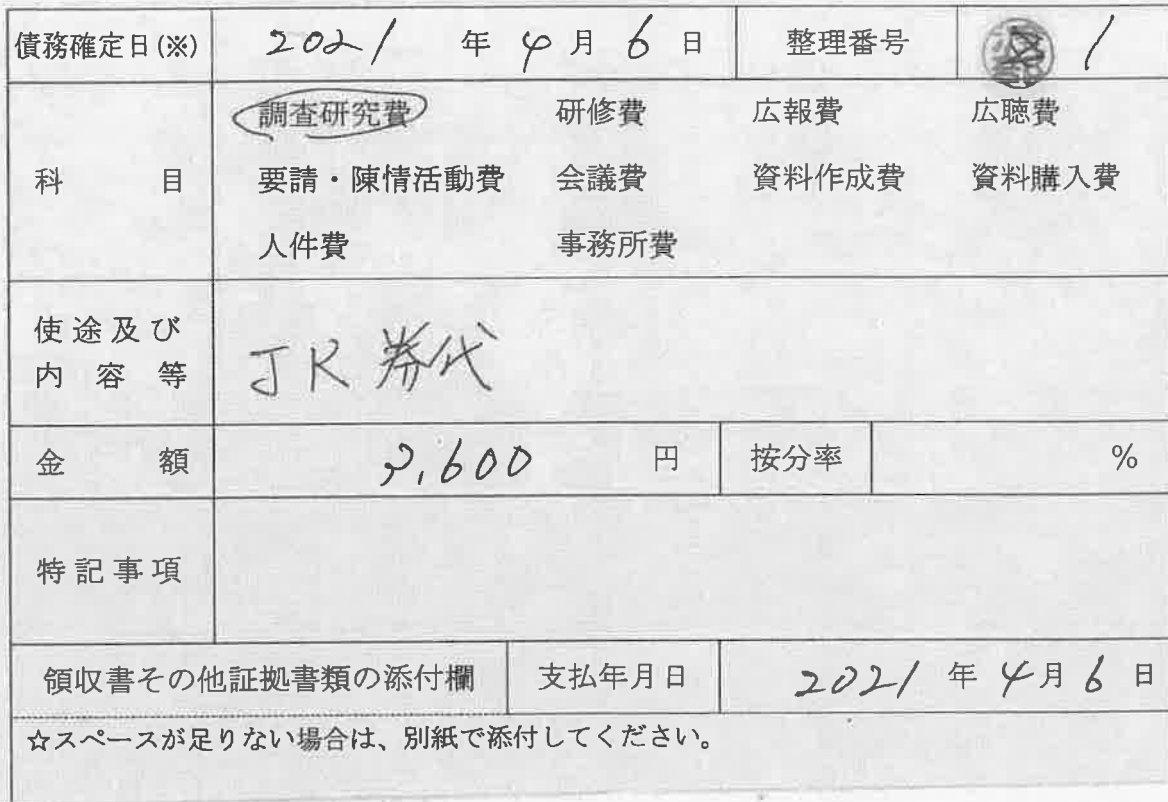 債務確定日(※) 2021 年 4 月 6 日 整理番号 1
調査研究費 研修費 広報費 広聴費
科目 要請・陳情活動費 会議費 資料作成費 資料購入費
人件費 事務所費
使途及び
内容等
JR券代
金額 3,600 円 按分率 %
特記事項
領収書その他証拠書類の添付欄 支払年月日 2021 年 4 月 6 日
☆スペースが足りない場合は、別紙で添付してください。